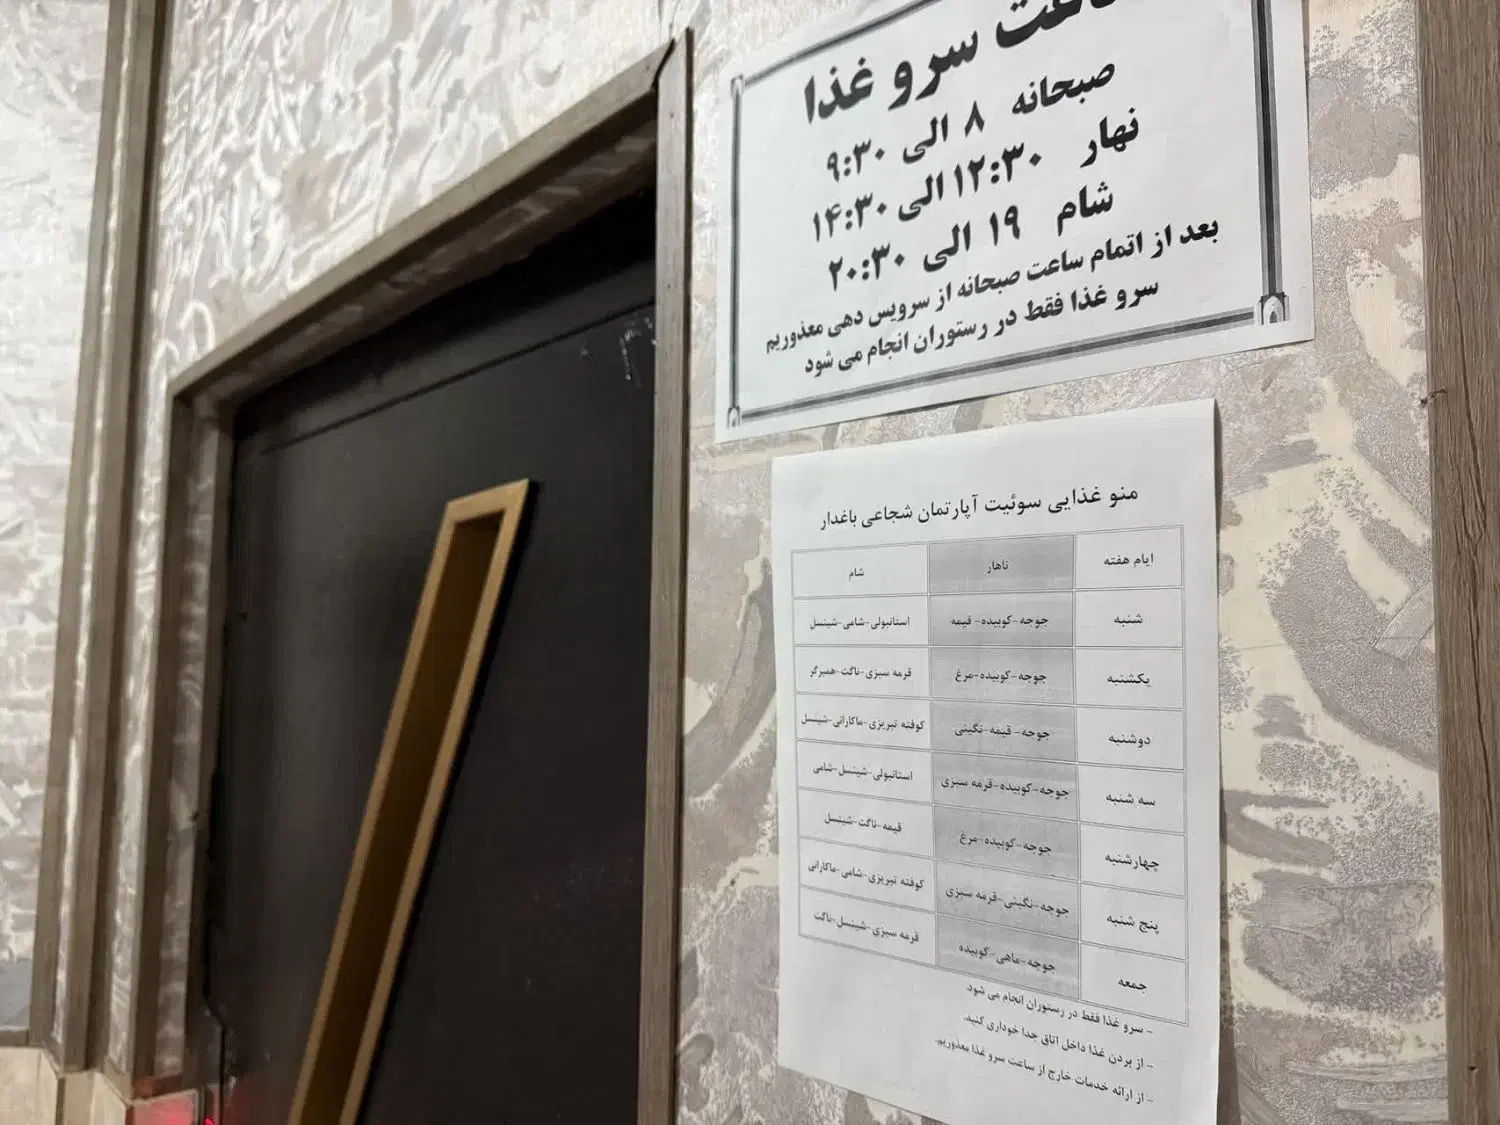 ساعت سرو غذا
صبحانه ۸ الی ۹:۳۰
نهار ۱۲:۳۰ الی ۱۴:۳۰
شام ۱۹ الی ۲۰:۳۰
بعد از اتمام ساعت صبحانه از سرویس دهی معذوریم
سرو غذا فقط در رستوران انجام می شود
منو غذایی سوئیت آپارتمان شجاعی باغدار
ایام هفته ناهار شام
شنبه جوجه-کوبیده- قیمه استانبولی-شامی-شینسل
یکشنبه جوجه-کوبیده-مرغ قرمه سبزی-ناگت-همبرگر
دوشنبه جوجه- قیمه-نگینی کوفته تبریزی-ماکارانی-شینسل
سه شنبه جوجه-کوبیده-قرمه سبزی استانبولی-شینسل-شامی
چهارشنبه جوجه-کوبیده-مرغ قیمه-ناگت-شینسل
پنج شنبه جوجه-نگینی-قرمه سبزی کوفته تبریزی-شامی-ماکارانی
جمعه جوجه-ماهی-کوبیده قرمه سبزی-شینسل-ناگت
- سرو غذا فقط در رستوران انجام می شود.
- از بردن غذا داخل اتاق جدا خوداری کنید.
- از ارائه خدمات خارج از ساعت سرو غذا معذوریم.